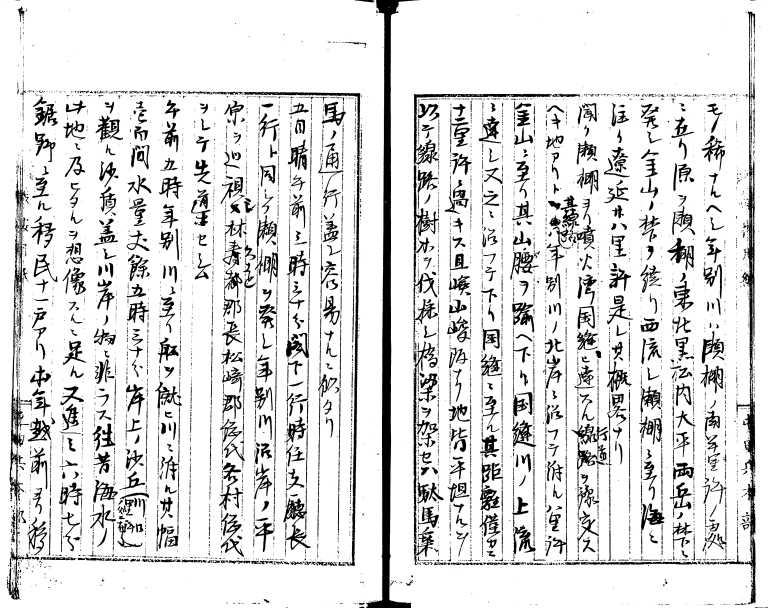 モノ稀ナルヘシ年別川ハ瀬棚ノ南壱里許ノ処
ニ在リ原ヲ瀬棚ノ東北黒松内大平両岳ノ麓ニ
発シ金山ノ麓ヲ繞リ西流シ瀬棚ニ至リ海ニ
注ク遼延廿八里許是レ其概畧ナリ
聞ク瀬棚ヨリ噴火湾国縫ニ達スル線路ヲ予定ス
其線路
行道
ヘキ地アリト年別川ノ北岸ニ沿フテ泝ル八里許
金山ニ至リ其山腰ヲ踰ヘ下リ国縫川ノ上流
ニ達シ又之ニ沿フテ下リ国縫ニ至ル其距離僅ニ
十二里許ニ過キス且嶮山峻阪ナク地皆平坦ナルヲ
以テ線路ノ樹木ヲ伐採シ橋梁ヲ架セハ駄馬乗
馬ノ通行蓋シ容易ナルニ似タリ
五日晴午前三時三十分閣下一行時任支廳長
一行ト同シク瀬棚ヲ発シ年別川沿岸ノ平
原ヲ巡視ス林壽都郡長松崎郡役代各村役代
ヲシテ先導セシム
午前五時年別川ニ至リ舩ニ就ヒ川ニ泝ル其幅
壱百間水量丈餘五時三十分岸上ノ沙丘
ヲ観ル沙質蓋シ川岸ノ物ニ非ラス往昔海水ノ
此地ニ及ヒタルヲ想像スルニ足ル又進ミ六時七分
鋸野ニ至ル移民十一戸アリ本年越前ヨリ移